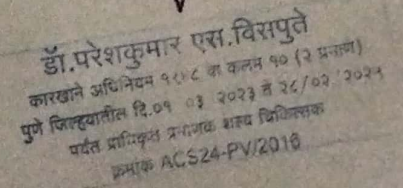 डॉ.परेशकुमार एस.विसपुते
कारखाने अधिनियम १९४८ चा कलम १० (२ प्रमाणे)
पुणे जिल्ह्यातील दि.०१ ०३ २०२३ ते २८/०२/२०२५
पर्यंत प्राधिकृत प्रमाणक शल्य चिकित्सक
क्रमांक ACS24-PV/2016